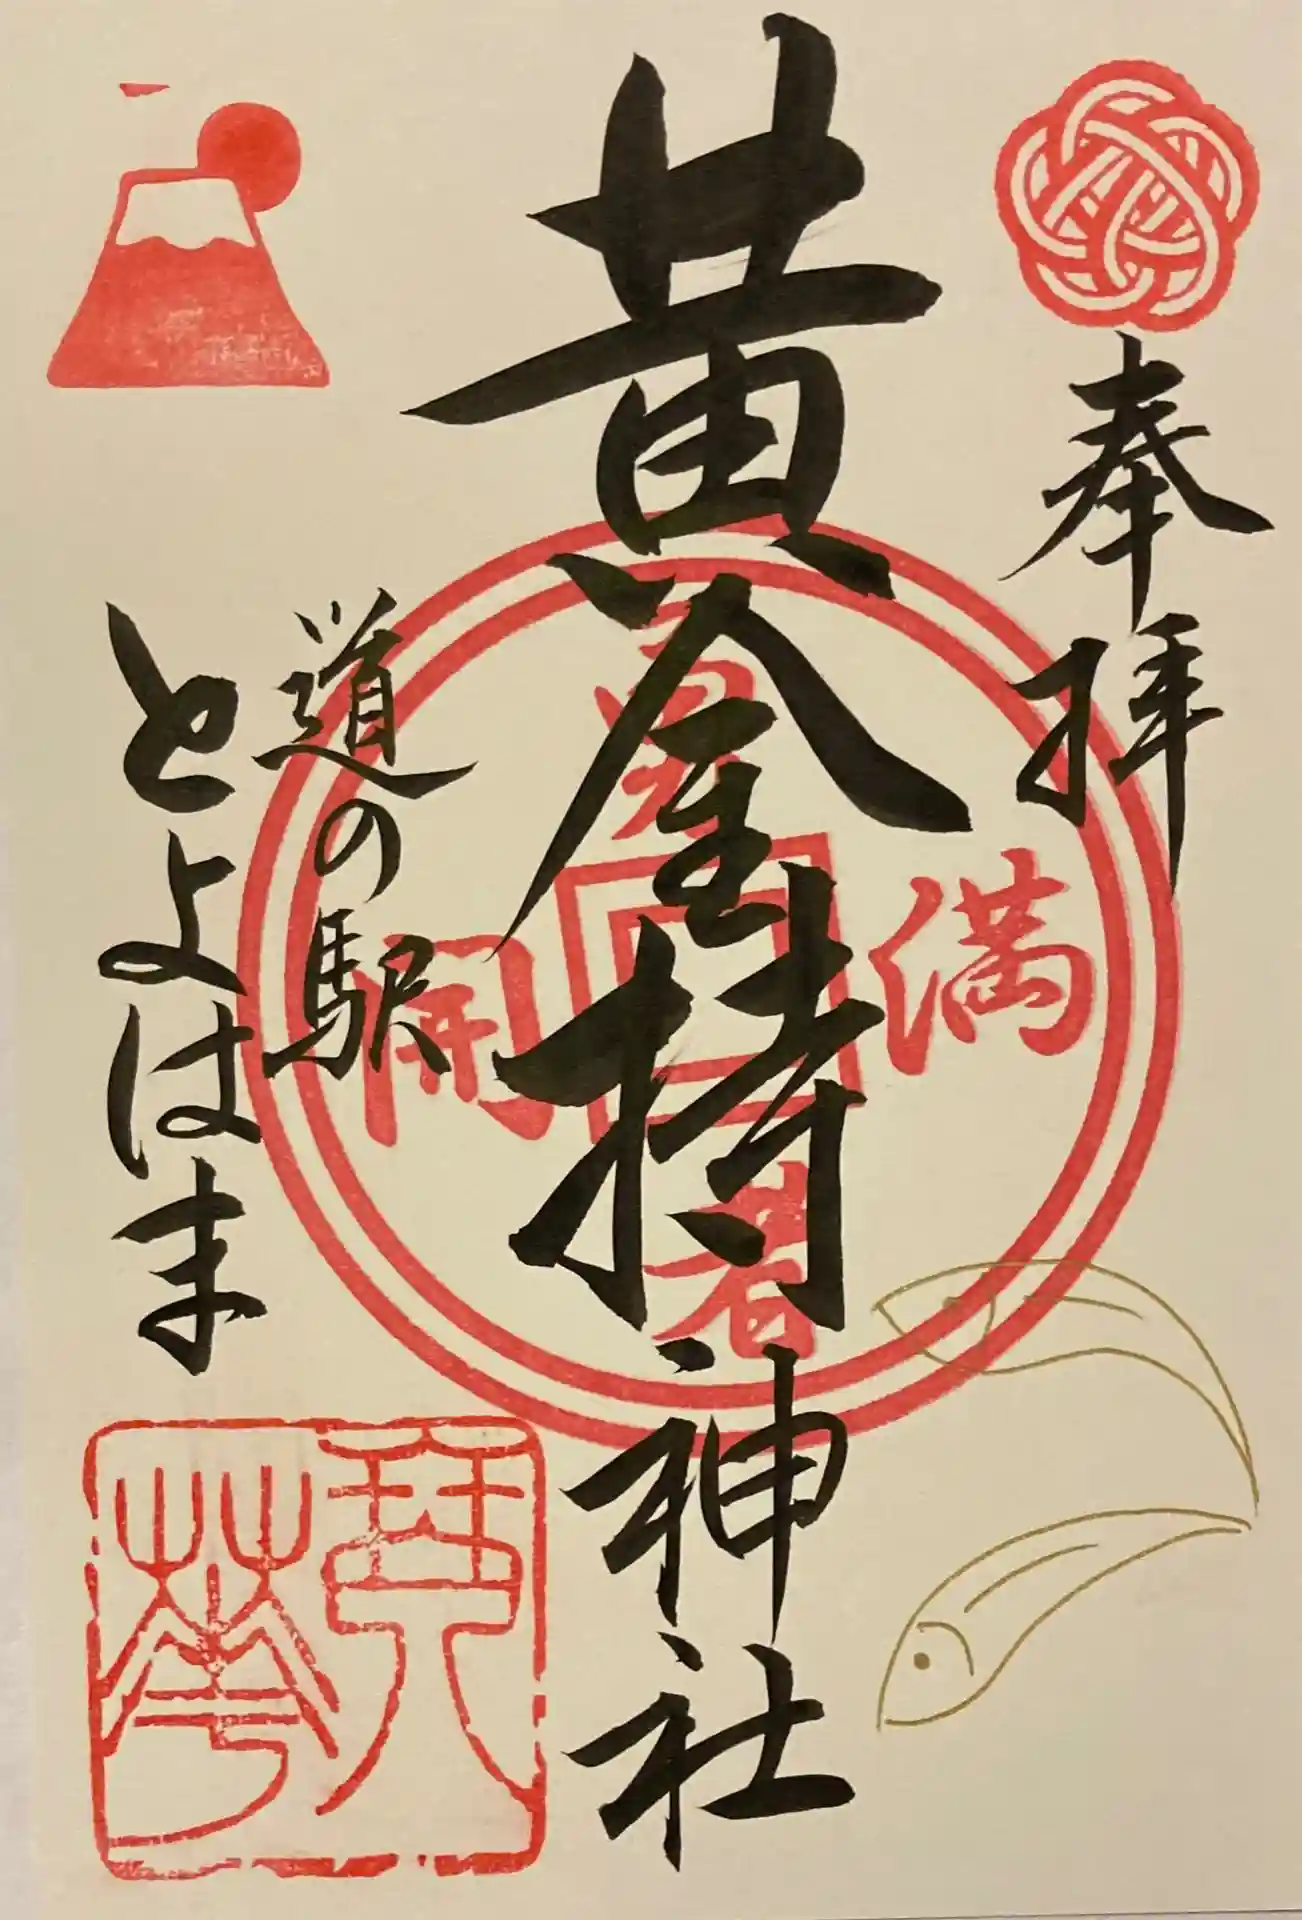 奉拝
黄金持神社
道の駅
とよはま
満
開